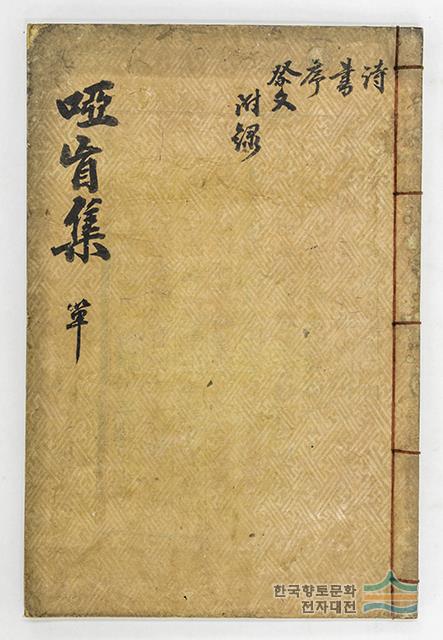 詩
書
序
祭文
附錄
啞盲集 單
한국향토문화
전자대전